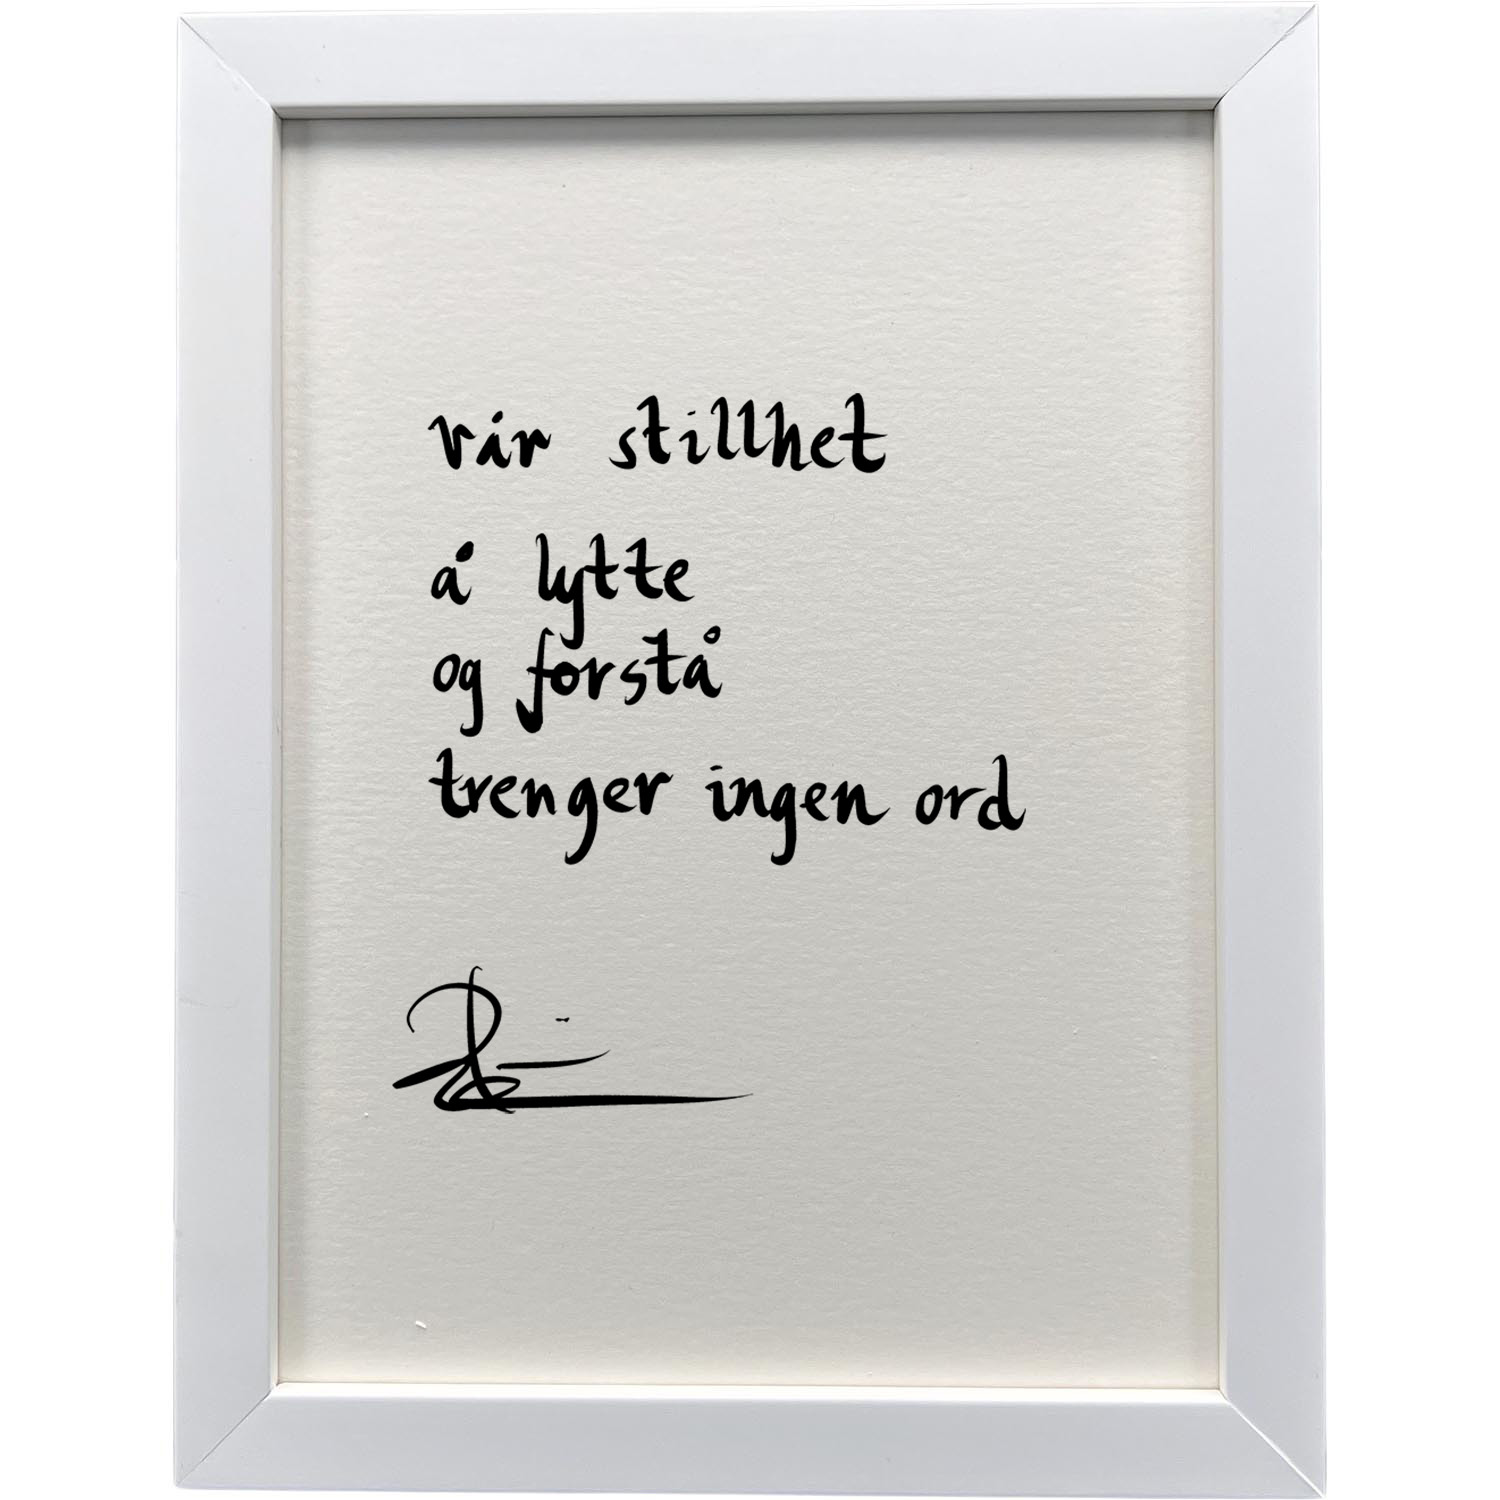 vår stillhet
å lytte
og forstå
trenger ingen ord